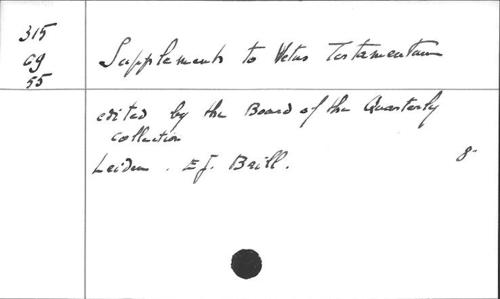 315
C9
55
Supplements to Vetus Testamentum
edited by the Board of the Quarterly
collection
Leiden. E.J. Brill. 8°